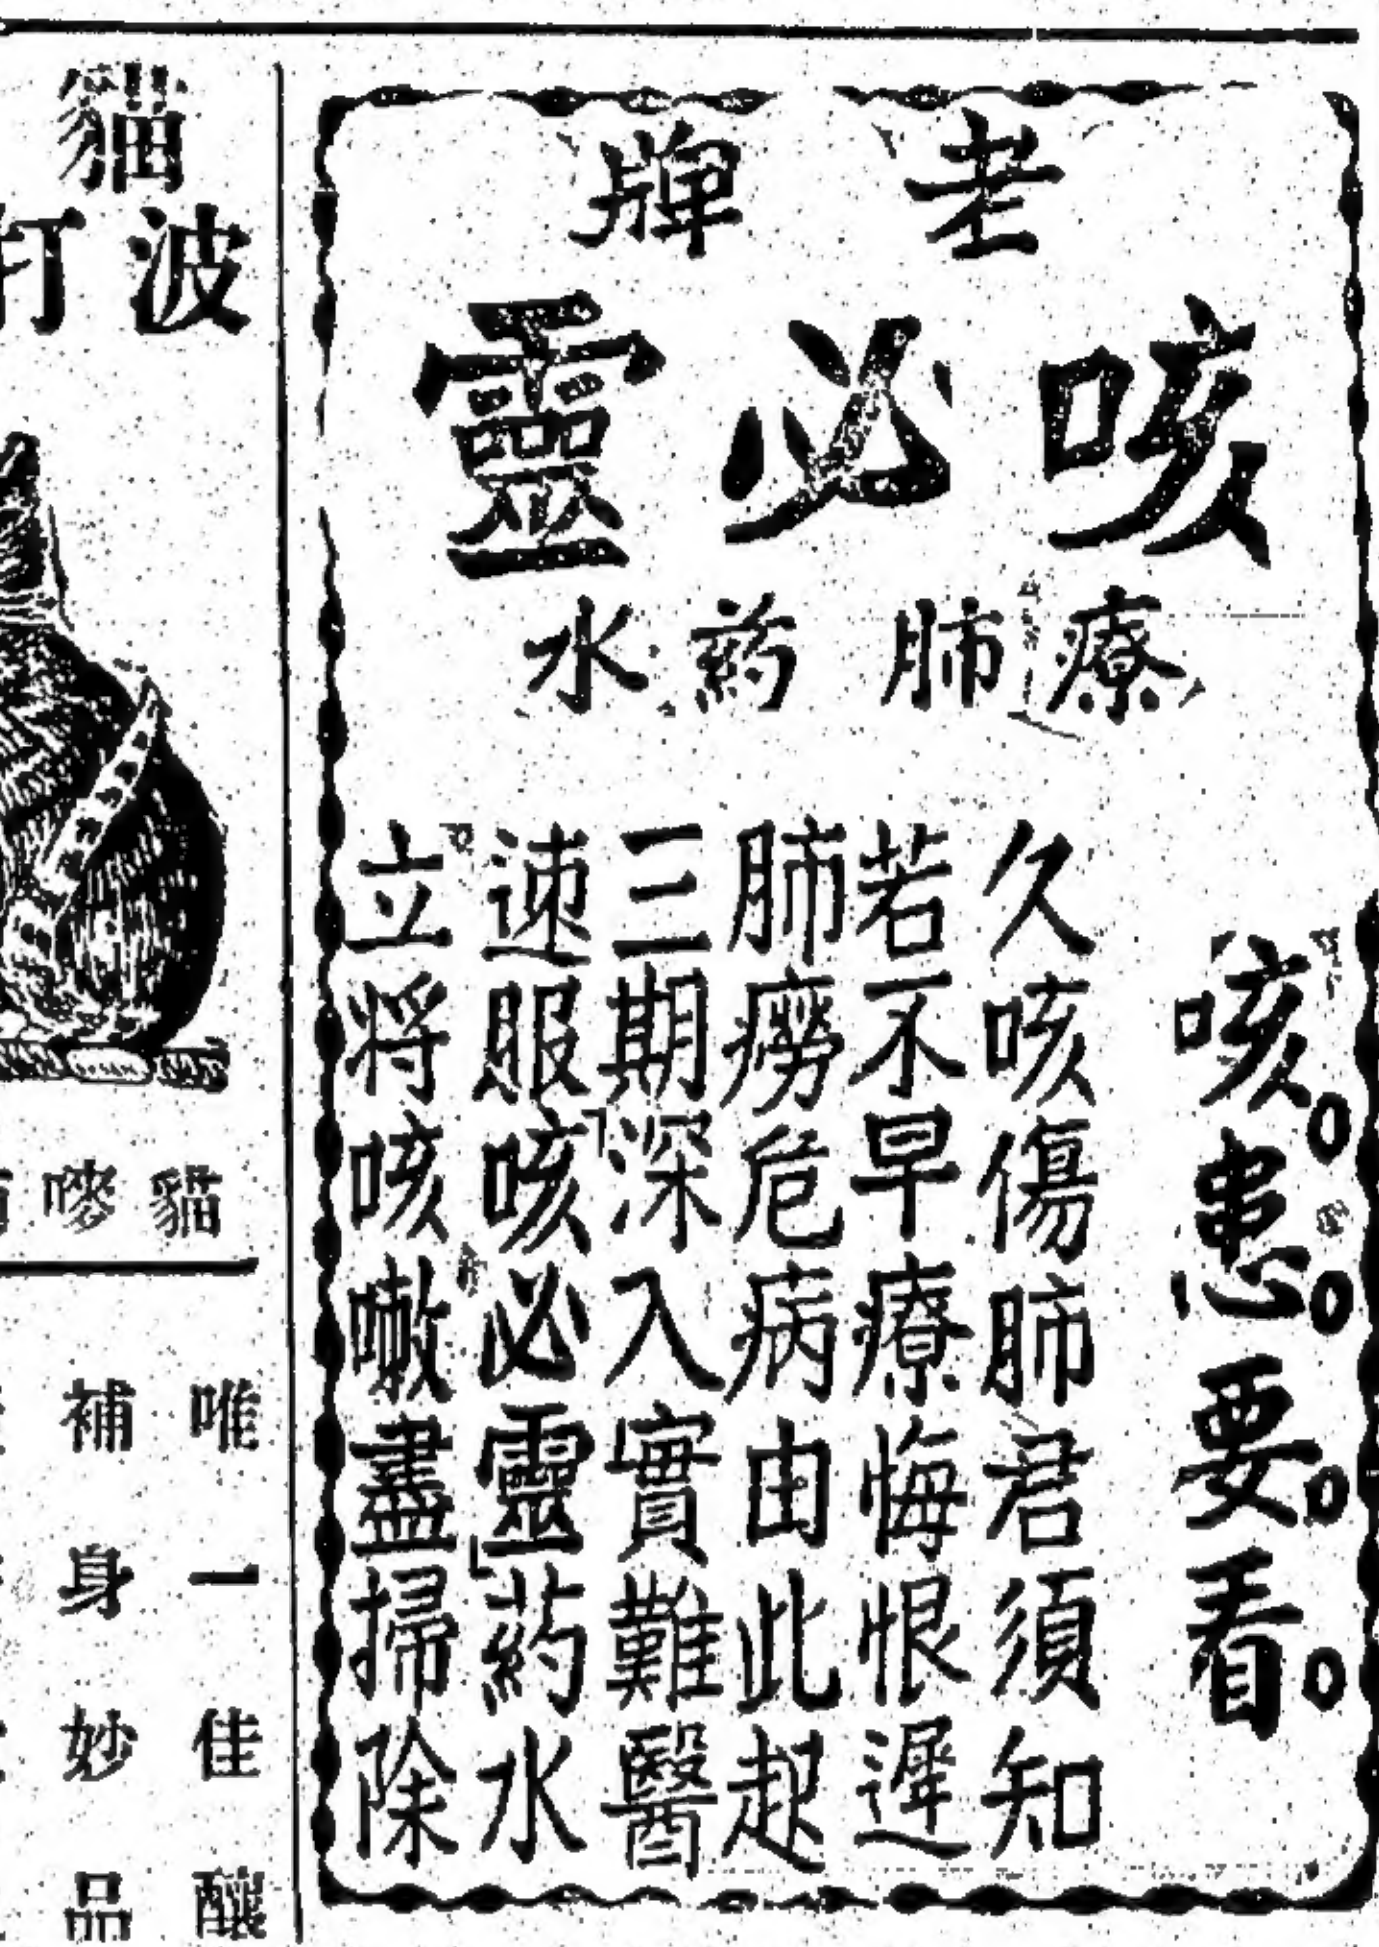 老牌
咳必靈
療肺药水
咳患要看
久咳傷肺君須知
若不早療悔恨遲
肺癆危病由此起
三期深入實難醫
速服「咳必靈」药水
立將咳嗽盡掃除
貓
波打
貓嘜
唯一佳釀
補身妙品